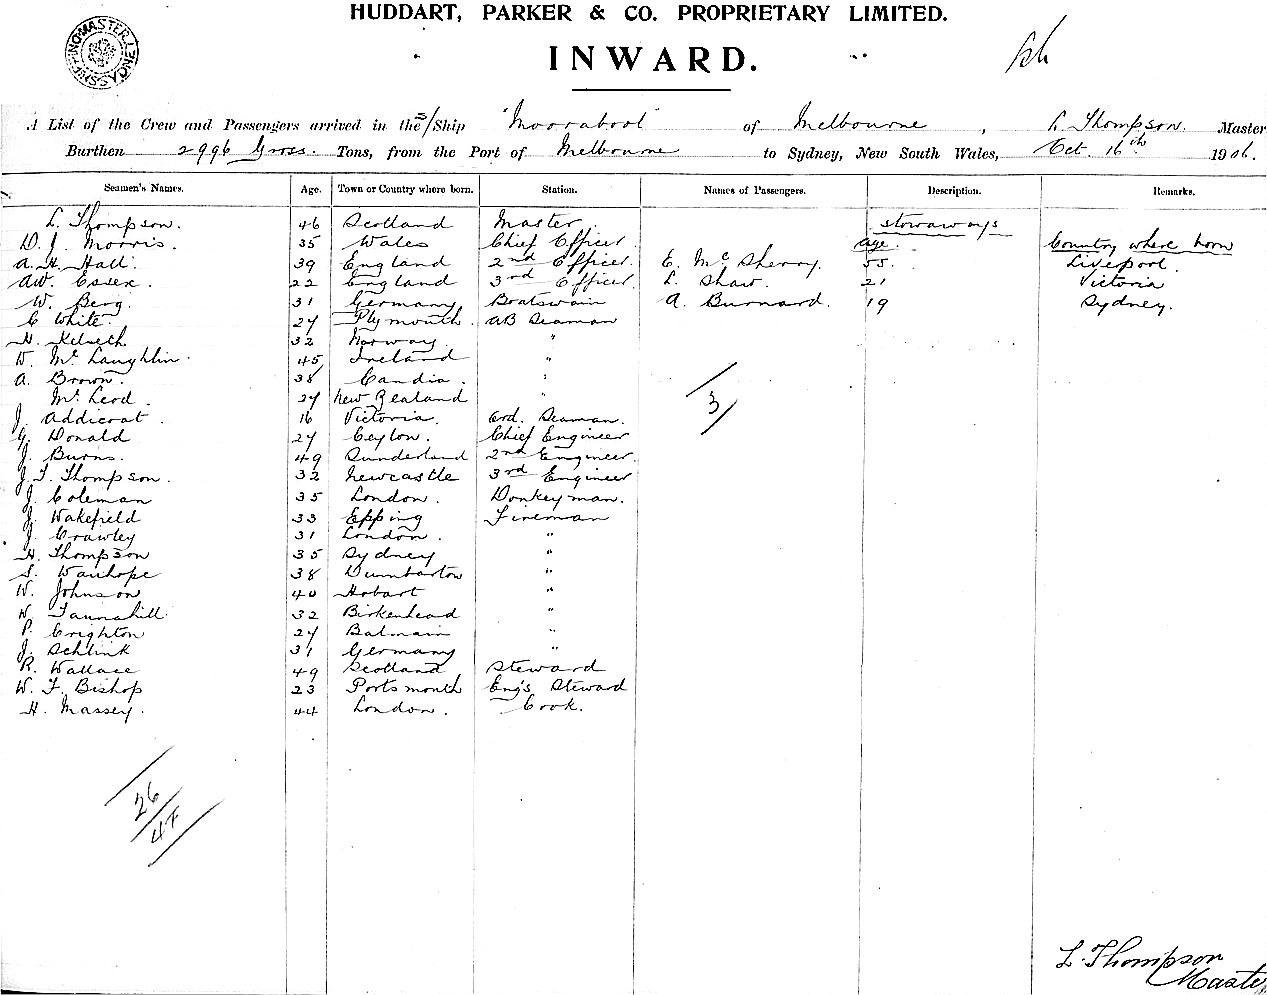 HUDDART, PARKER & CO. PROPRIETARY LIMITED.
SHIPPING MASTER SYDNEY
INWARD.
A List of the Crew and Passengers arrived in the S/Ship "Moorabool" of Melbourne, L. Thompson. Master
Burthen 2996 Gross. Tons, from the Port of Melbourne to Sydney, New South Wales, Oct. 16th 1906.
Seamen's Names. Age. Town or Country where born. Station. Names of Passengers. Description. Remarks.
L. Thompson. 46 Scotland Master stowaways
D. J. Morris. 35 Wales Chief Officer. age. Country where born
A. H. Hall. 39 England 2nd Officer. E. McSherry. 55. Liverpool.
AW. Essex. 22 England 3rd Officer L. Shaw. 21 Victoria
W. Berg. 31 Germany Boatswain A. Burnard. 19 Sydney.
C White. 27 Plymouth. AB Seaman
H. 32 Norway. "
W. McLaughlin. 45 Ireland "
A. Brown. 38 Candia. "
McLeod. 27 New Zealand "
J. Addicoat. 16 Victoria. Ord. Seaman.
G. Donald 27 Ceylon. Chief Engineer
J. Burns. 49 Sunderland 2nd Engineer.
J. T. Thompson. 32 Newcastle 3rd Engineer
J. Coleman 35 London. Donkeyman.
J. Wakefield 33 Epping Fireman
J. Crawley 31 London. "
H. Thompson 35 Sydney "
S. Wauhope 38 Dumbarton "
W. Johnson 40 Hobart "
W. Tannahill 32 Birkenhead "
P. Crighton 27 Balmain "
J. Schlink 31 Germany "
R. Wallace 49 Scotland Steward
W. F. Bishop 23 Portsmouth Eng's Steward
H. Massey. 44 London. Cook.
3
26
47
L. Thompson
Master